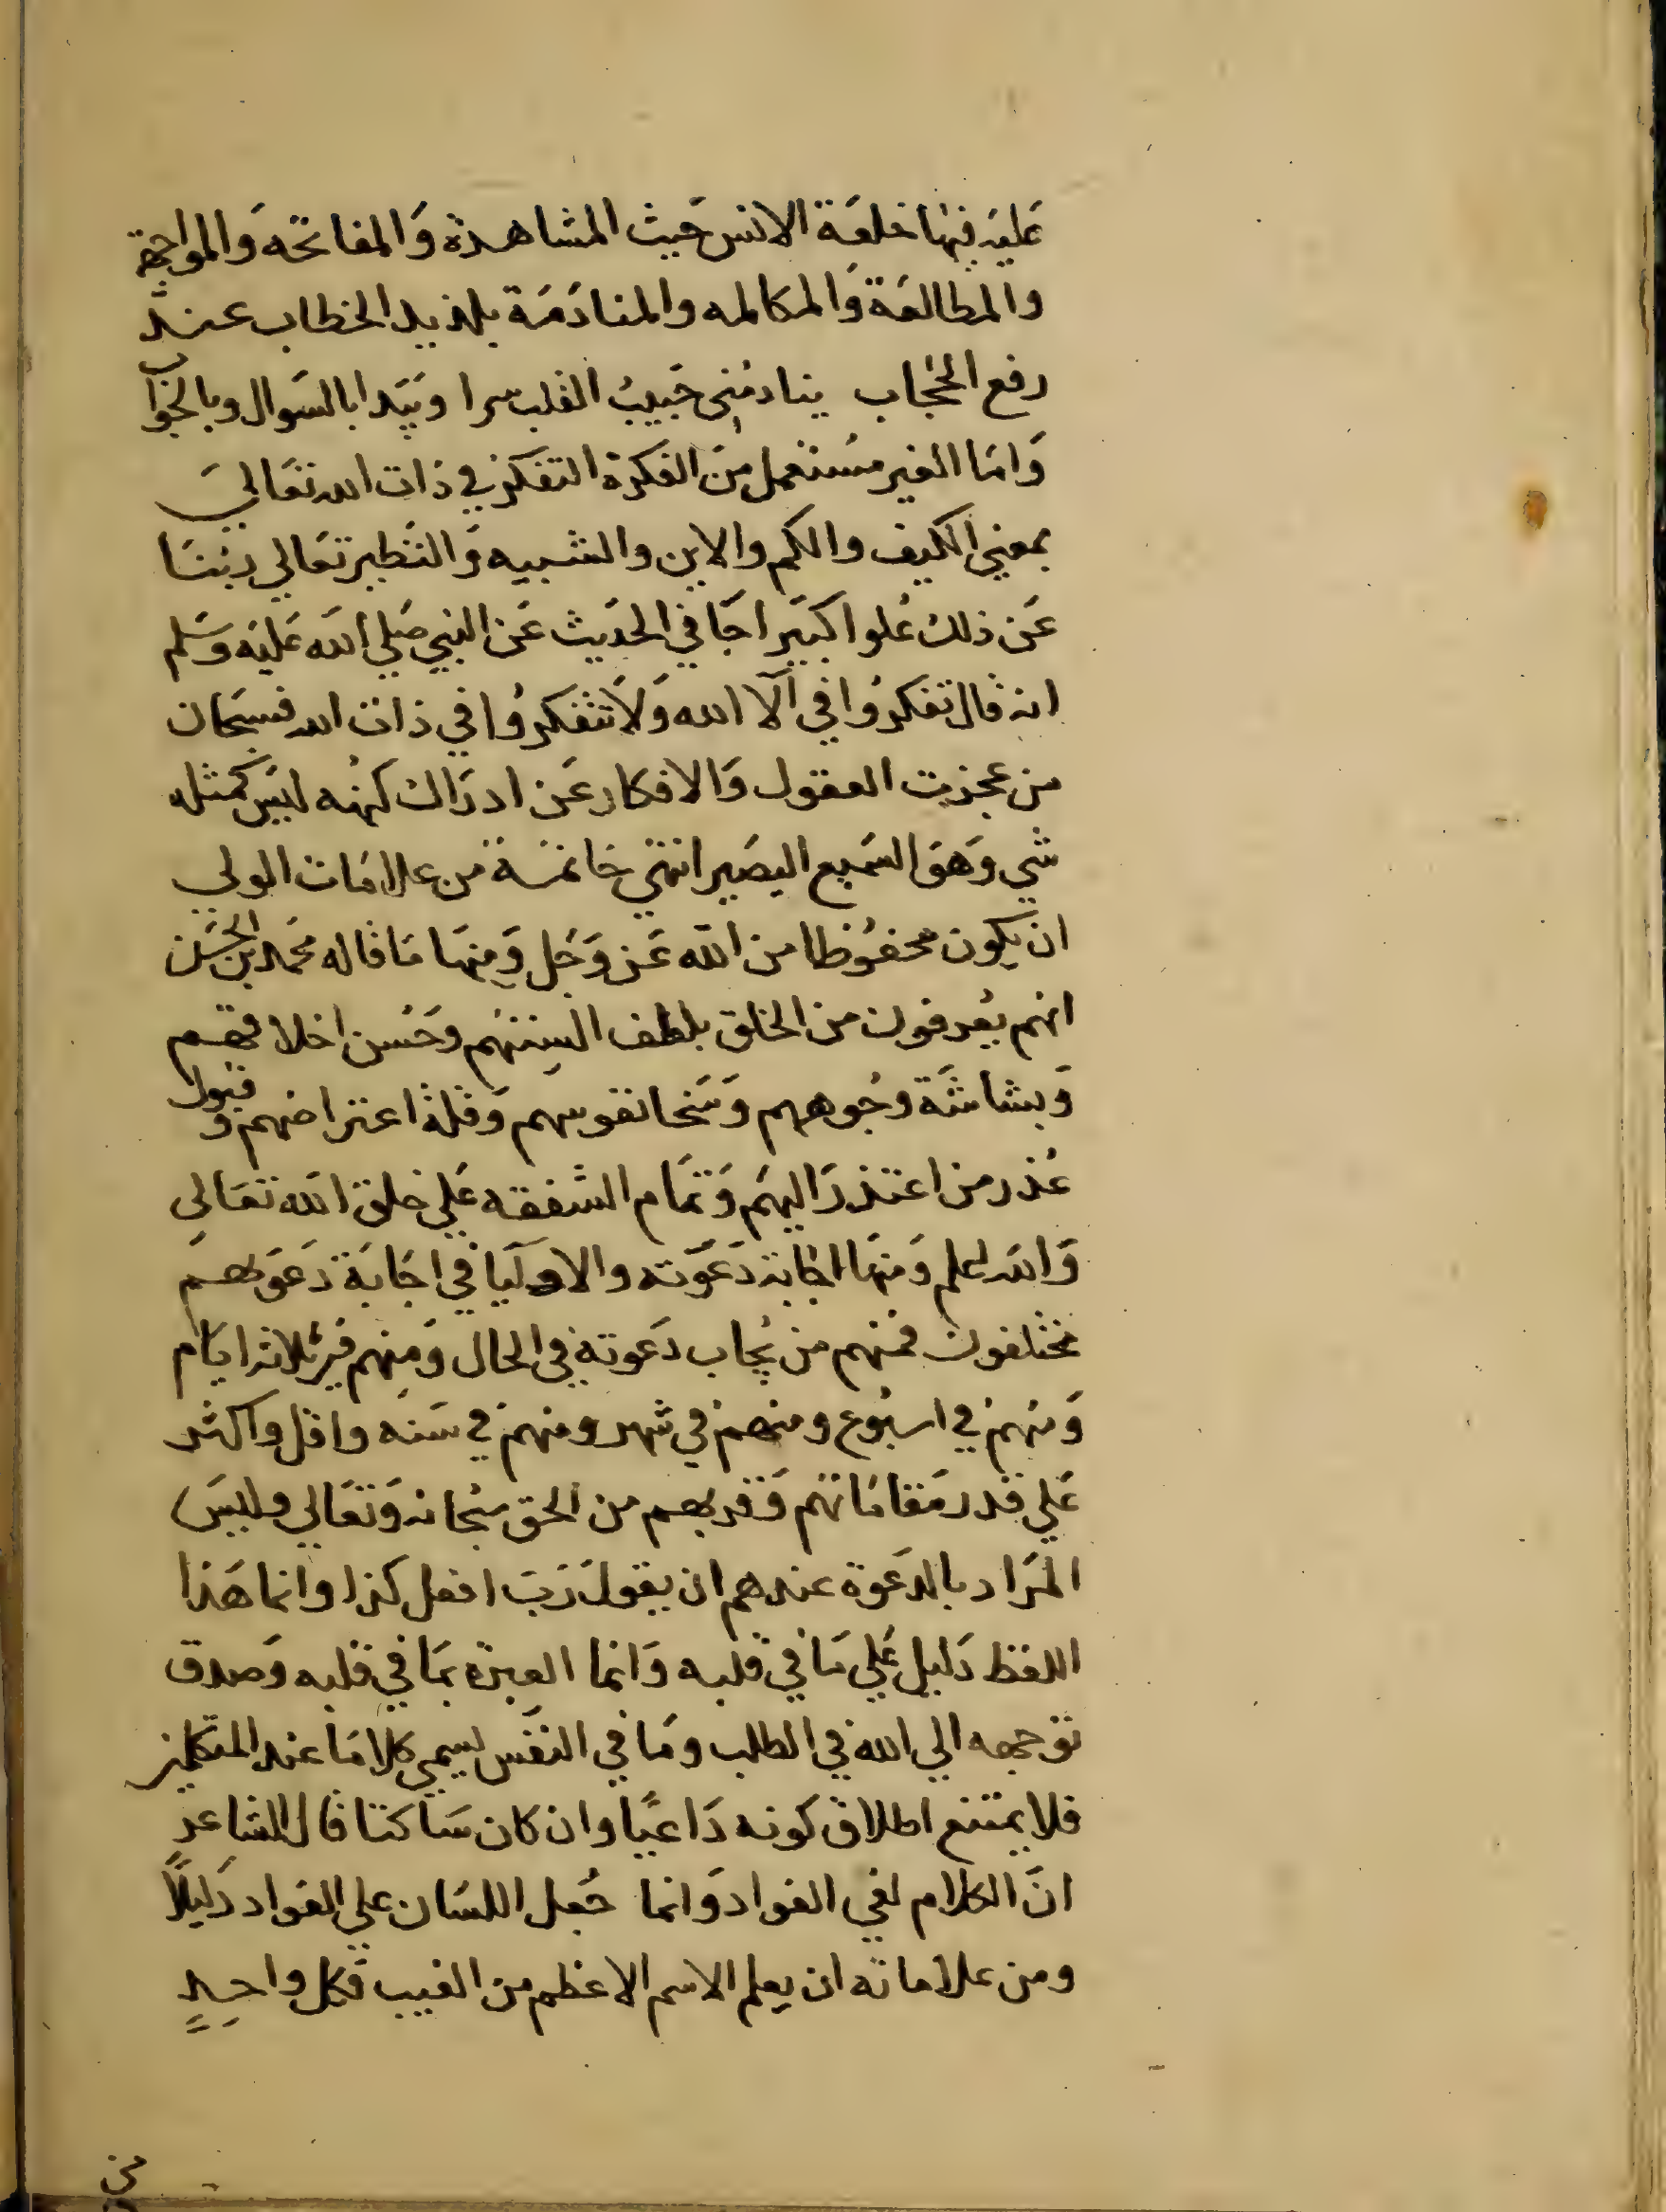 عَليه فيهَا خلعَة الانس حَيث المشاهدة وَالمفاتحه وَالمواجهة
والمطالعَة وَالمكالمه والمنادَمَة بلذيد الخطاب عند
رفع الحجاب ينادمُني حَبيبُ القلب سرا وَيَبدا بالسَوال وبالجوَاب
وَامَا الغير مسُتعمل مِنَ الفكرَة التفكر في ذات الله تعَالي
بمعني الكيف والكم والاين والتشبيه وَالتنَظير تعَالي ربنَا
عَن ذلك عُلوا كبيَرا جَا في الحَديث عَن النبي صَلي الله عَليَه وَسَلم
انه قال تفكرُوا في آلا الله وَلاَ تتفكرُوا في ذات الله فسبحَان
من عجزت العقول وَالافكار عَن ادرَاك كنهُه ليَسَ كمثله
شي وَهوَ السَميع البصَير انتهي خاتمَة من علامَات الولي
ان يكون محفوُظا من الله عَز وَجَل وَمنهَا مَا قاله محمَد بن الحسَن
انهم يعُرفون من الخلق بلطف السِنتهُم وحَسُن اخلاقهم
وَبشاشَة وجُوههم وَسَخا نفوسهم وَقلة اعتراضهم وَقبول
عُذر من اعتذرَ اليهَم وَتمَام الشفقه عَلي خلق الله تعَالي
وَالله اعلم وَمنهَا اجَابة دَعوَته والاوليَا في اجَابَة دَعوَتهم
مختلفون فمنهم من يُجاب دَعوته في الحال وَمِنهم في ثلاثه ايَام
وَمنهمُ في اسبُوع ومنهم في شهر ومنهم في سَنَه واقل واكثر
عَلي قدر مَقامَاتهَم وَقربهم من الحق سُبحانه وَتعَالي وليسَ
المَراد بالدعَوة عندهم ان يقولَ رَبَ افعل كذا وانما هَذا
اللفظ دَليل عَلي مَا في قلبه وَانما العبرَة بمَا في قلبه وَصدق
توجهه الي الله في الطلب ومَا في النفَس ليسمي كلامَا عند المتكلمين
فلا يمتنع اطلاق كونه دَاعيًا وان كان سَاكتا قال الشاعر
انَ الكلام لفي الفواد وَانما جُعل اللسَان علي الفواد دَليلًا
ومن علاماته ان يعلم الاسم الاعَظم من الغيب فكل واحدٍ
من